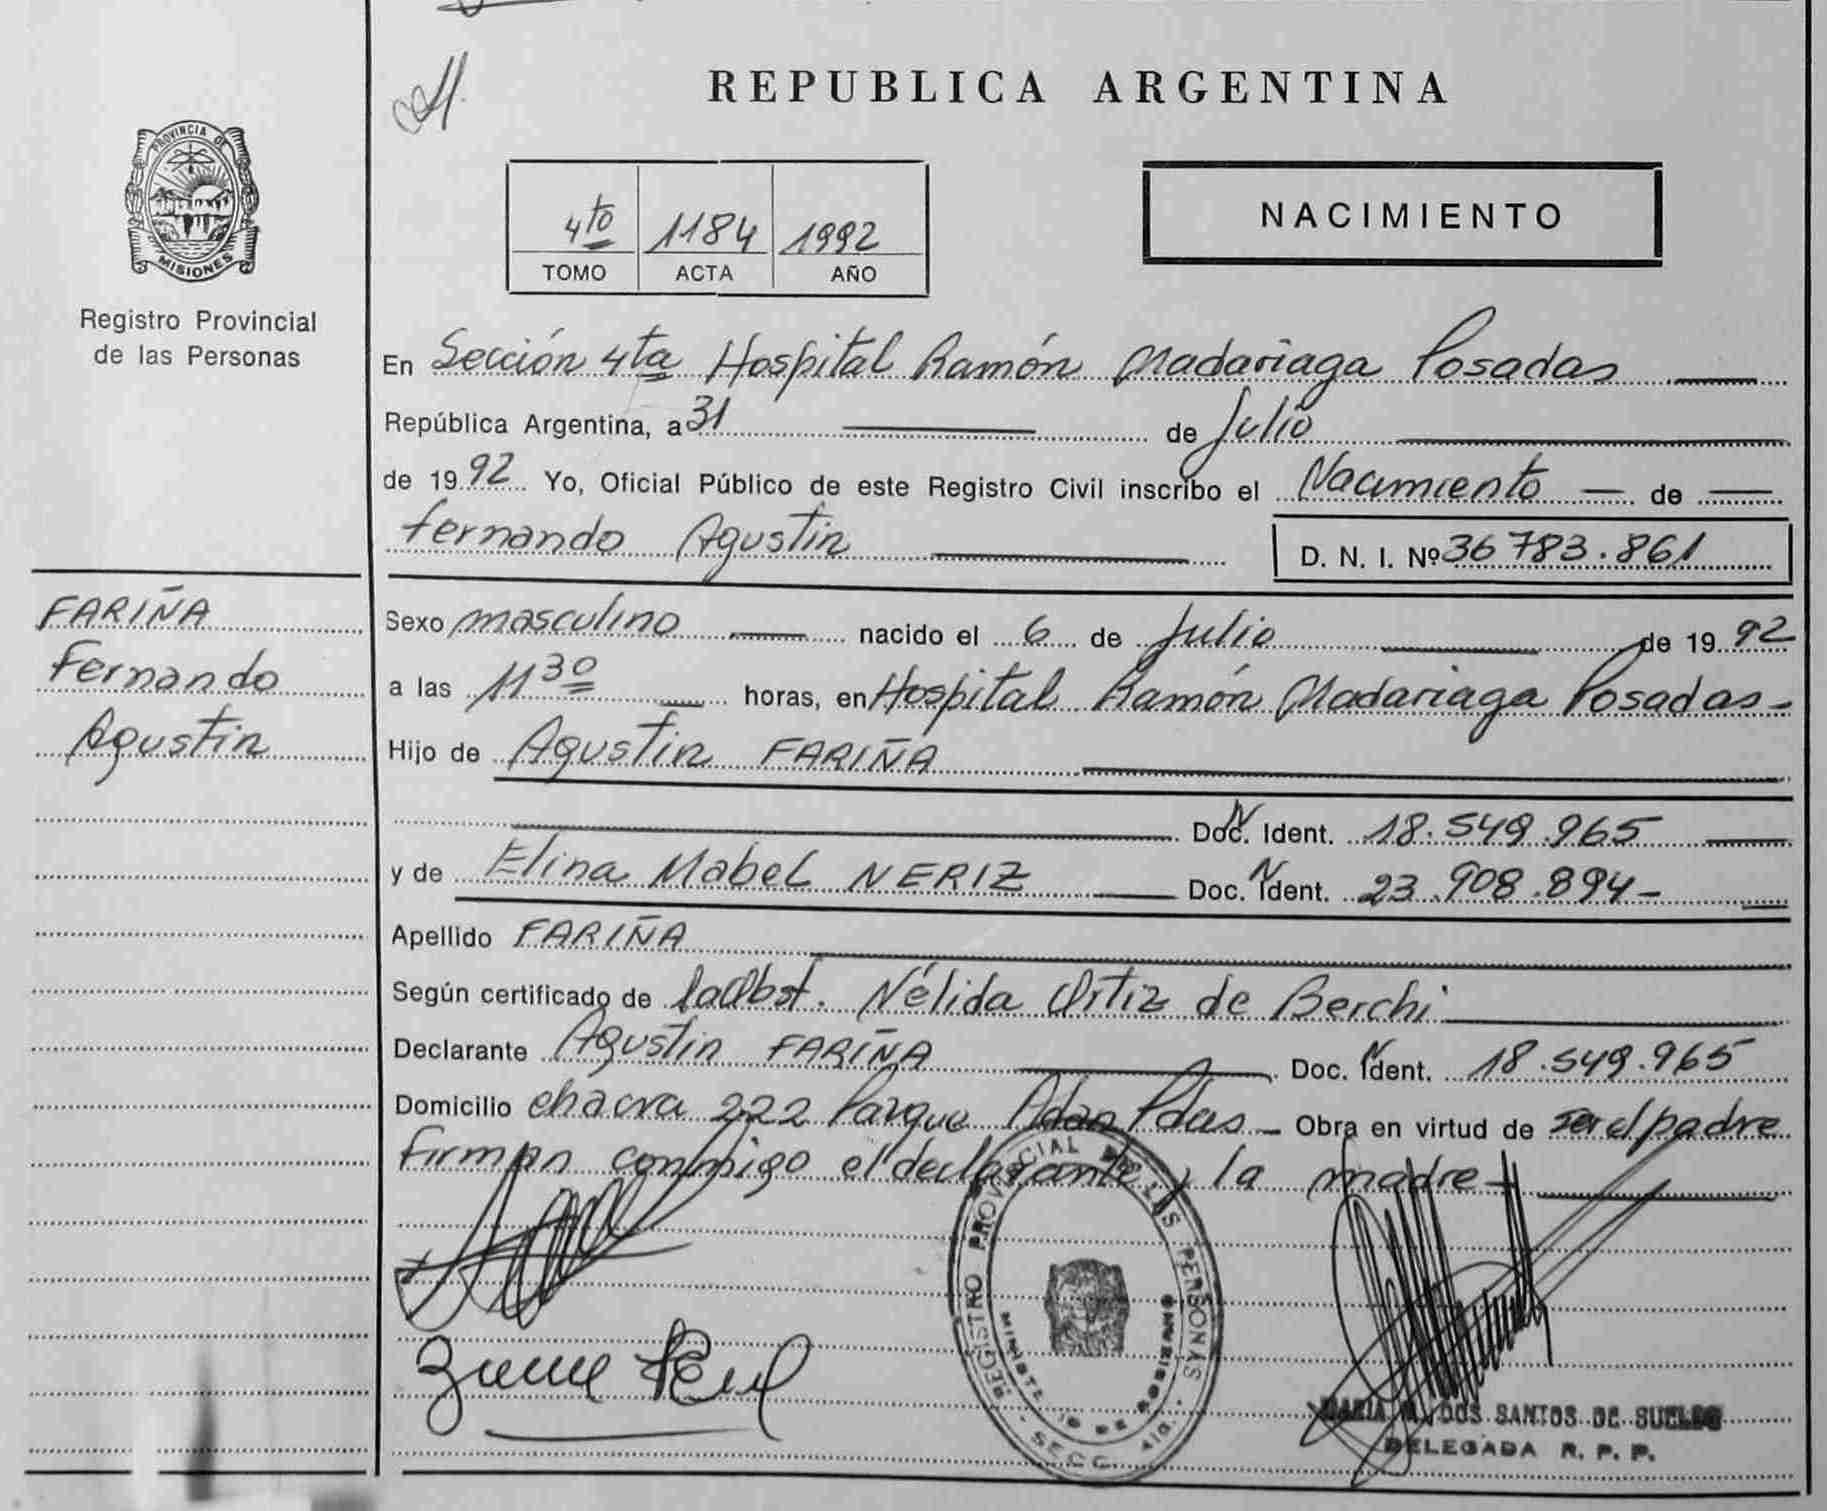 REPUBLICA ARGENTINA
PROVINCIA DE
MISIONES
Registro Provincial
de las Personas
4to 1184 1992
TOMO ACTA AÑO
NACIMIENTO
En Sección 4ta Hospital Ramón Madariaga Posadas
República Argentina, a 31 de Julio
de 1992 Yo, Oficial Público de este Registro Civil inscribo el Nacimiento de
Fernando Agustin D. N. I. Nº 36 783.861
FARIÑA
Fernando
Agustin
Sexo masculino nacido el 6 de Julio de 1992
a las 11 30 horas, en Hospital Ramón Madariaga Posadas-
Hijo de Agustin FARIÑA
Doc. Ident. 18.549.965
y de Elina Mabel NERIZ Doc. Ident. 23.908.894-
Apellido FARIÑA
Según certificado de la Obst. Nélida Ortiz de Berchi
Declarante Agustin FARIÑA Doc. Ident. 18.549.965
Domicilio chacra 222 Parque Adan Pdas- Obra en virtud de ser el padre
Firman conmigo el declarante y la madre-
REGISTRO PROVINCIAL DE LAS PERSONAS
DOS SANTOS DE
DELEGADA R. P. P.